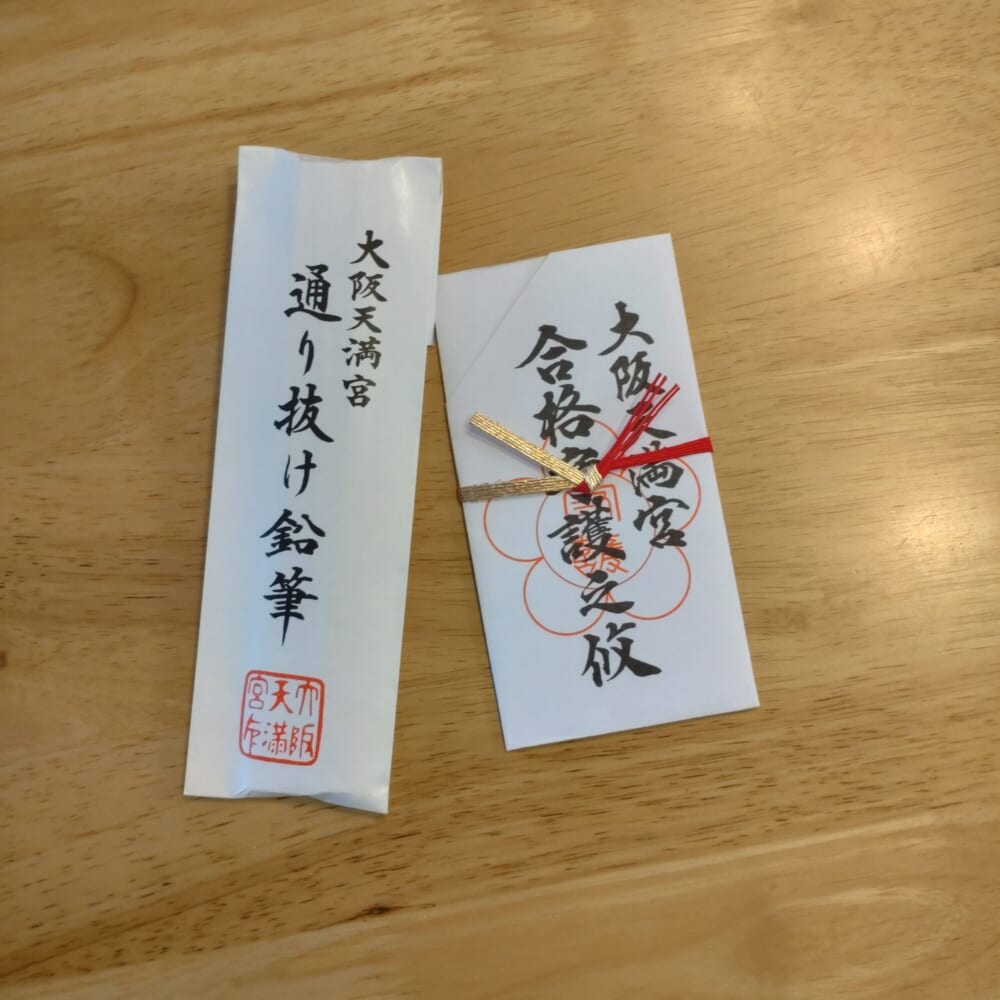 大阪天満宮
通り抜け鉛筆
大阪
天満
宮
大阪天満宮
合格
護之攸